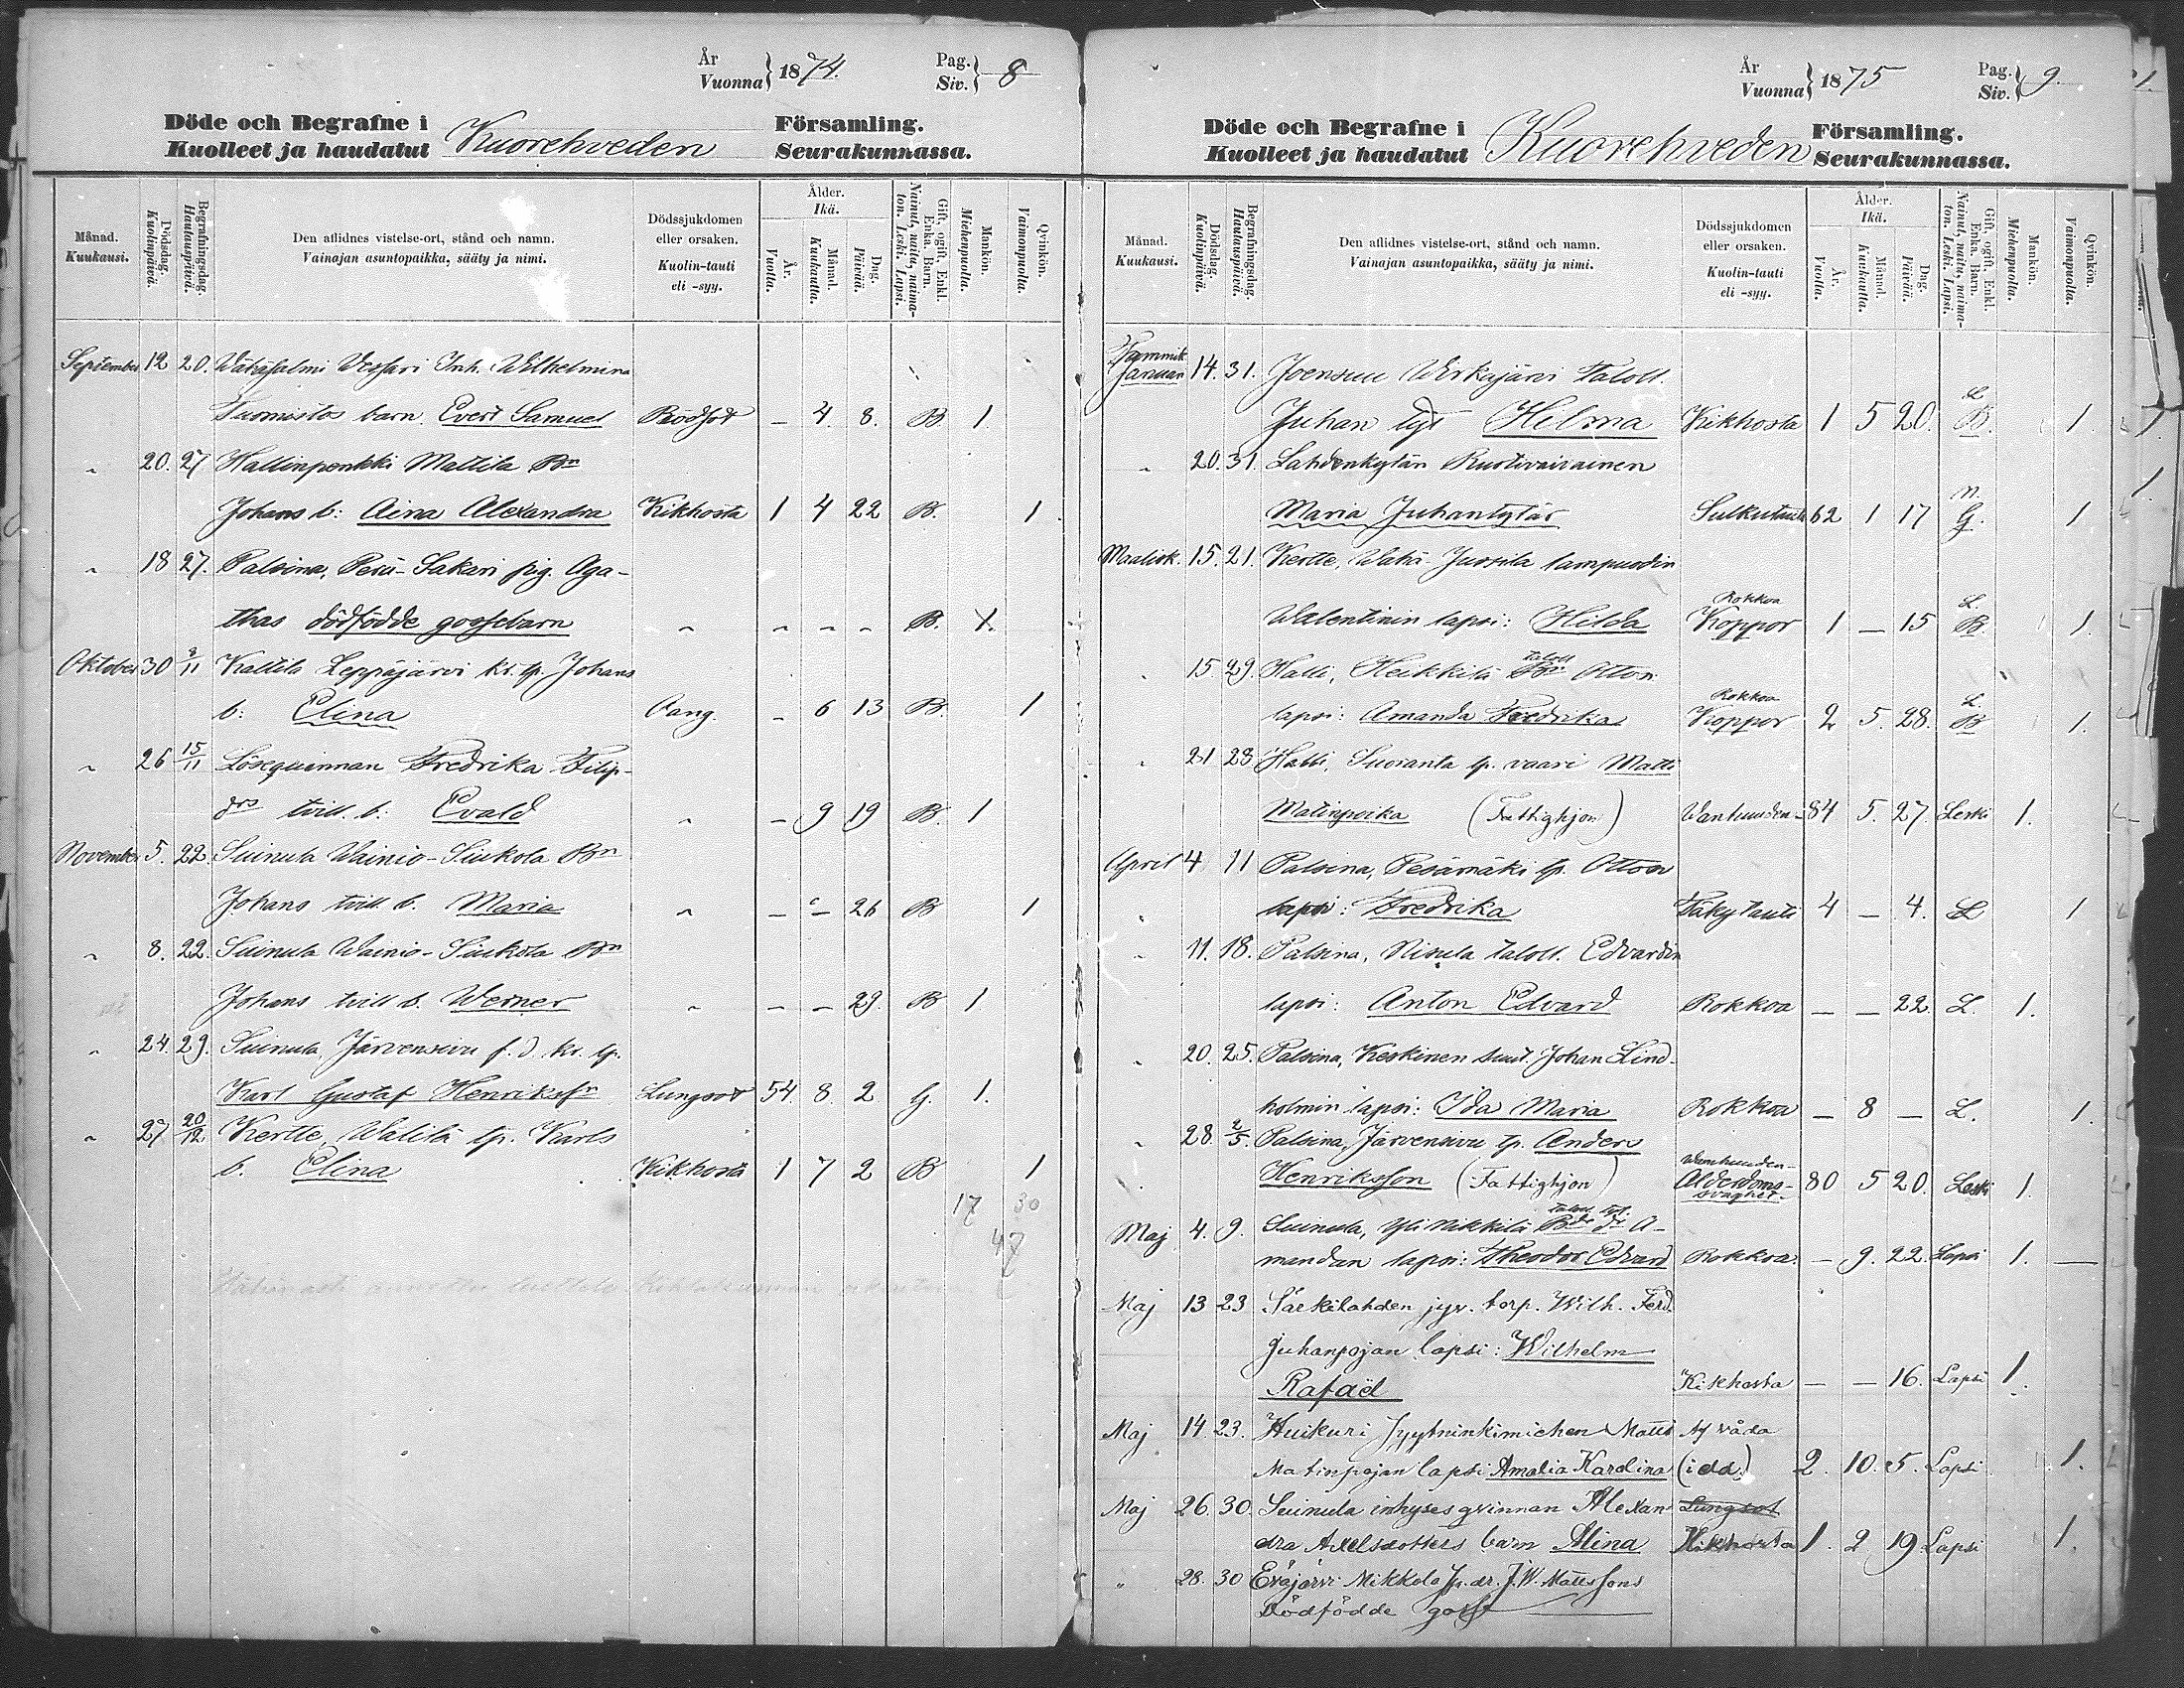 År
Vuonna } 1874.
Pag.
Siv. } 8
Döde och Begrafne i
Kuolleet ja haudatut
Kuorehveden
Församling.
Seurakunnassa.
Månad.
Kuukausi.
Dödsdag.
Kuolinpäivä.
Begrafningsdag.
Hautauspäivä.
Den aflidnes vistelse-ort, stånd och namn.
Vainajan asuntopaikka, sääty ja nimi.
Dödssjukdomen
eller orsaken.
Kuolin-tauti
eli -syy.
Ålder.
Ikä.
År.
Vuotta.
Månad.
Kuukautta.
Dag.
Päivää.
Gift, ogift, Enkl.
Enka. Barn.
Nainut, naitu, naima-
ton. Leski. Lapsi.
Mankön.
Miehenpuolta.
Qvinkön.
Vaimonpuolta.
September 12 20. Wähäsalmi Inh. Wilhelmina
Tuomistos barn. Evert Samuel Rödsot – 4. 8. B. 1.
" 20. 27 Hallinpenkki Mattila Bn
Johans b: Aina Alexandra Kikhosta 1 4 22 B. 1.
" 18 27. Palsina, Perä-Sakari pig. Aga-
thas dödfödde gossebarn " – – – B. 1.
Oktober 30 8/11 Kattila Leppäjärvi kr. tp. Johans
b: Elina – 6 13 B. 1
" 26 15/11 Lösqvinnan Fredrika Filip-
drs tvill. b: Evald " – 9 19 B. 1
November 5. 22. Suinula Wainio-Siukola Bn
Johans tvill. b. Maria " – – 26 B 1
" 8. 22. Suinula Wainio-Siukola Bn
Johans tvill b. Werner " – – 29. B 1.
" 24. 29. Suinula, Järvensivu f. d. kr. tp.
Karl Gustaf Henriksfn Lungsot 54 8. 2 G. 1.
" 27 20/12 Kertte, Walilä tp. Karls
b. Elina Kikhosta 1 7 2 B 1
17 30
47
År
Vuonna } 1875
Pag.
Siv. } 9.
Döde och Begrafne i
Kuolleet ja haudatut
Kuorehveden
Församling.
Seurakunnassa.
Månad.
Kuukausi.
Dödsdag.
Kuolinpäivä.
Begrafningsdag.
Hautauspäivä.
Den aflidnes vistelse-ort, stånd och namn.
Vainajan asuntopaikka, sääty ja nimi.
Dödssjukdomen
eller orsaken.
Kuolin-tauti
eli -syy.
Ålder.
Ikä.
År.
Vuotta.
Månad.
Kuukautta.
Dag.
Päivää.
Gift, ogift, Enkl.
Enka. Barn.
Nainut, naitu, naima-
ton. Leski. Lapsi.
Mankön.
Miehenpuolta.
Qvinkön.
Vaimonpuolta.
Tammik
Januari 14. 31. Joensuu Wirkajärvi Taloll.
Juhan tyt Hilma Kikhosta 1 5 20. L B. 1.
" 20. 31. Lahdenkylän Ruotivaivainen
Maria Juhantytär Sulkutauti 62 1 17 N. G. 1
Maalisk. 15. 21. Kertte, Wähä-Jussila lampuodin
Walentinin lapsi: Hilda Rokkoa Koppor 1 – 15 L. B. 1.
" 15 29. Halli, Heikkilä taloll Bn Otton
lapsi: Amanda Fredrika Rokkoa Koppor 2 5. 28. L B 1.
" 21 28 Halli, Suoranta tp. vaari Matti
Matinpoika (Fattighjon) Wanhuuden- 84 5. 27. Leski 1.
April 4 11 Palsina, Pesämäki tp. Otton
lapsi: Fredrika 4 – 4. L 1
" 11. 18. Palsina, Nisula taloll. Edvardin
lapsi: Anton Edvard Rokkoa – – 22. L. 1.
" 20. 25. Palsina, Keskinen suut. Johan Lind-
holmin lapsi: Ida Maria Rokkoa – 8 – L. 1.
" 28. 2/5. Palsina, Järvensivu tp. Anders
Henriksson (Fattighjon) Wanhuuden- Ålderdoms- svaghet. 80 5 20. Leski 1.
Maj 4. 9. Suinula, Yli Nikkilä taloll. tyt. Bde dr A-
mandan lapsi: Theodor Edvard Rokkoa. – 9. 22. Lapsi 1. –
Maj 13 23 Särkilahden jyv. torp. Wilh. Ferd.
Juhanpojan lapsi: Wilhelm
Rafaël Kikhosta – – 16. Lapsi 1.
Maj 14. 23. Huikuri Matts Af våda
Matinpojan lapsi Amalia Karolina 2. 10. 5. Lapsi 1.
Maj 26. 30. Suinula inhyses qvinnan Alexan- Lungsot
dra Axelsdotters barn Alina Kikhosta 1. 2 19 Lapsi 1.
" 28. 30 Eräjärvi Mikkola J. W. Mattssons
Dödfödde goss